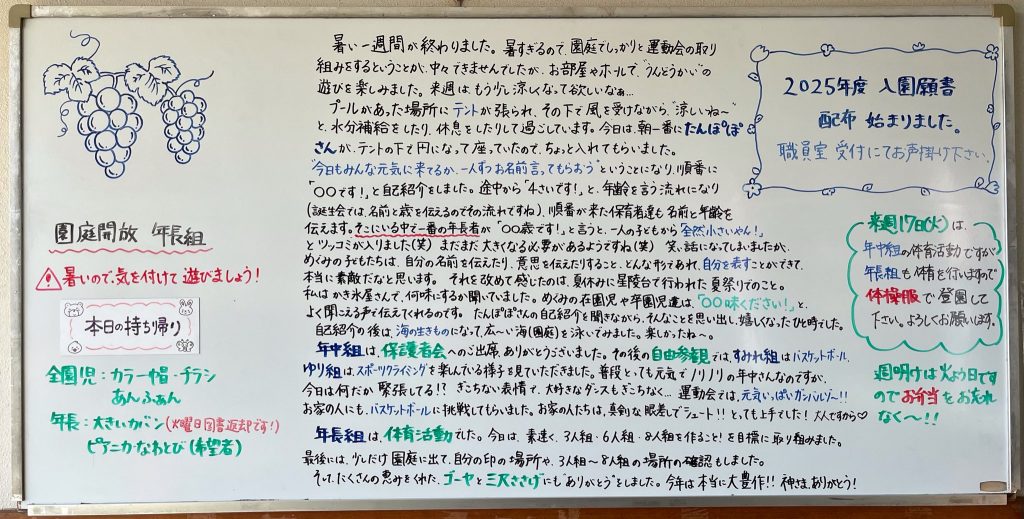 暑い一週間が終わりました。暑すぎるので、園庭でしっかりと運動会の取り
組みをするということが、中々できませんでしたが、お部屋やホールで、"うんどうかい"の
遊びを楽しみました。来週は もう少し涼しくなって欲しいなぁ…
プールがあった場所に テントが張られ、その下で風を受けながら"涼しいね〜"
と、水分補給をしたり、休息をしたりして過ごしています。今日は、朝一番にたんぽぽ
さんが、テントの下で円になって座っていたので、ちょっと入れてもらいました。
"今日もみんな元気に来てるか、一人ずつお名前言ってもらおう"ということになり、順番に
「〇〇です!」と自己紹介をしました。途中から「4さいです!」と、年齢を言う流れになり
(誕生会では、名前と歳を伝えるのでその流れですね)、順番が来た保育者達も 名前と年齢を
伝えます。そこにいる中で一番の年長者が「〇〇歳です!」と言うと、一人の子どもから「全然小さいやん!」
とツッコミが入りました(笑) まだまだ 大きくなる必要があるようですね(笑) 笑い話になってしまいましたが、
めぐみの子どもたちは、自分の名前を伝えたり、意思を伝えたりすること、どんな形であれ、自分を表すことができて、
本当に素敵だなと思います。 それを改めて感じたのは、夏休みに星陵台で行われた 夏祭りでのこと。
私は かき氷屋さんで、何味にするか聞いていました。めぐみの在園児や卒園児達は、「〇〇味ください!」と、
よく聞こえる声で伝えてくれるのです。 たんぽぽさんの自己紹介を聞きながら、そんなことを思い出し、嬉しくなったひと時でした。
自己紹介の後は、海の生きものになって、広〜い海(園庭)を泳いでみました。楽しかったね〜。
年中組は、保護者会へのご出席、ありがとうございました。その後の自由参観では、すみれ組はバスケットボール、
ゆり組は、スポーツクライミングを楽しんでいる様子を見ていただきました。普段とっても元気で ノリノリの年中さんなのですが、
今日は何だか 緊張してる!? ぎこちない表情で、大好きなダンスもぎこちなく… 運動会では、元気いっぱいガンバルゾ〜!!
お家の人にも、バスケットボールに挑戦してもらいました。お家の人たちは、真剣な眼差でシュート!! とっても上手でした! 大人ですから♡
年長組は、体育活動でした。今日は、素速く、3人組・6人組・8人組を作ること!を目標に取り組みました。
最後には、少しだけ園庭に出て、自分の印の場所や、3人組〜8人組の場所の確認もしました。
そして、たくさんの恵みをくれた、ゴーヤと三尺ささげにも"ありがとう"をしました。今年は本当に大豊作!! 神さま、ありがとう!
園庭開放 年長組
暑いので、気を付けて 遊びましょう!
本日の持ち帰り
全園児:カラー帽・チラシ
あんふぁん
年長:大きいカバン(火曜日図書返却です!)
ピアニカ・なわとび(希望者)
2025年度 入園願書
配布 始まりました。
職員室 受付にてお声掛け下さい。
来週17日(火)は、
年中組の体育活動ですが、
年長組も体育を行いますので
体操服で登園して
下さい。よろしくお願いします。
週明けは火よう日です
のでお弁当をお忘れ
なく〜!!